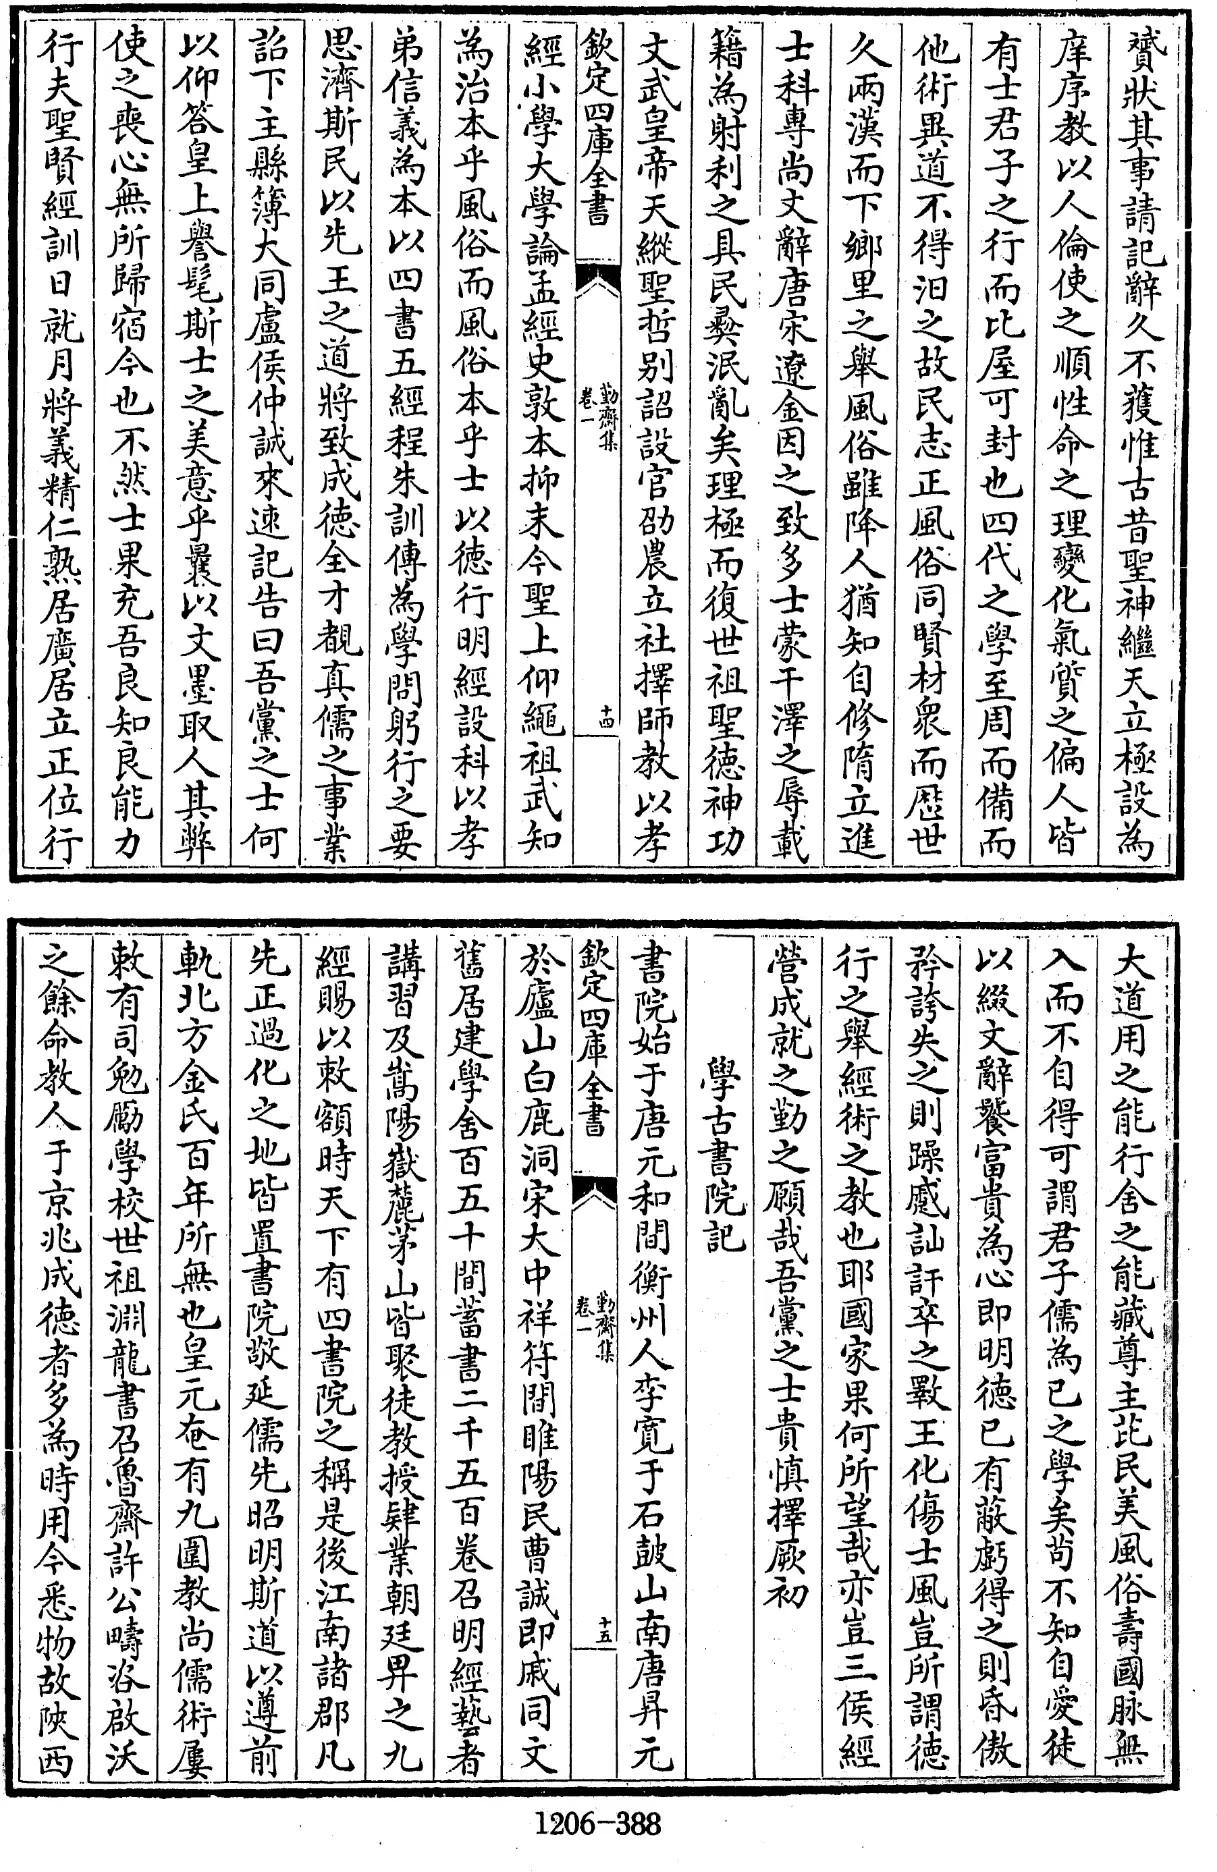 贇狀其事請記辭久不獲惟古昔聖神繼天立極設為
庠序教以人倫使之順性命之理變化氣質之偏人皆
有士君子之行而比屋可封也四代之學至周而備而
他術異道不得汩之故民志正風俗同賢材衆而歴世
久兩漢而下鄉里之舉風俗雖降人猶知自修隋立進
士科專尚文辭唐宋遼金因之致多士蒙干澤之辱載
籍為射利之具民彛泯亂矣理極而復世祖聖德神功
文武皇帝天縱聖哲别詔設官劭農立社擇師教以孝
欽定四庫全書
勤齋集
卷一
十四
經小學大學論孟經史敦本抑末今聖上仰繩祖武知
為治本乎風俗而風俗本乎士以德行明經設科以孝
弟信義為本以四書五經程朱訓傳為學問躬行之要
思濟斯民以先王之道將致成德全才覩真儒之事業
詔下主縣簿大同盧侯仲誠來速記告曰吾黨之士何
以仰答皇上譽髦斯士之美意乎曩以文墨取人其弊
使之喪心無所歸宿今也不然士果充吾良知良能力
行夫聖賢經訓日就月將義精仁熟居廣居立正位行
大道用之能行舍之能藏尊主芘民美風俗壽國脉無
入而不自得可謂君子儒為已之學矣苟不知自愛徒
以綴文辭饕富貴為心即明德已有蔽虧得之則昏傲
矜誇失之則躁慼訕訐卒之斁王化傷士風豈所謂德
行之舉經術之教也耶國家果何所望哉亦豈三侯經
營成就之勤之願哉吾黨之士貴慎擇厥初
學古書院記
書院始于唐元和間衡州人李寛于石鼓山南唐昇元
欽定四庫全書
勤齋集
卷一
十五
於廬山白鹿洞宋大中祥符間睢陽民曹誠即戚同文
舊居建學舍百五十間蓄書二千五百卷召明經藝者
講習及嵩陽嶽麓茅山皆聚徒教授肄業朝廷畀之九
經賜以敕額時天下有四書院之稱是後江南諸郡凡
先正過化之地皆置書院敬延儒先昭明斯道以遵前
軌北方金氏百年所無也皇元奄有九圍教尚儒術屢
敕有司勉勵學校世祖淵龍書召魯齋許公疇咨啟沃
之餘命教人于京兆成德者多為時用今悉物故陜西
1206-388